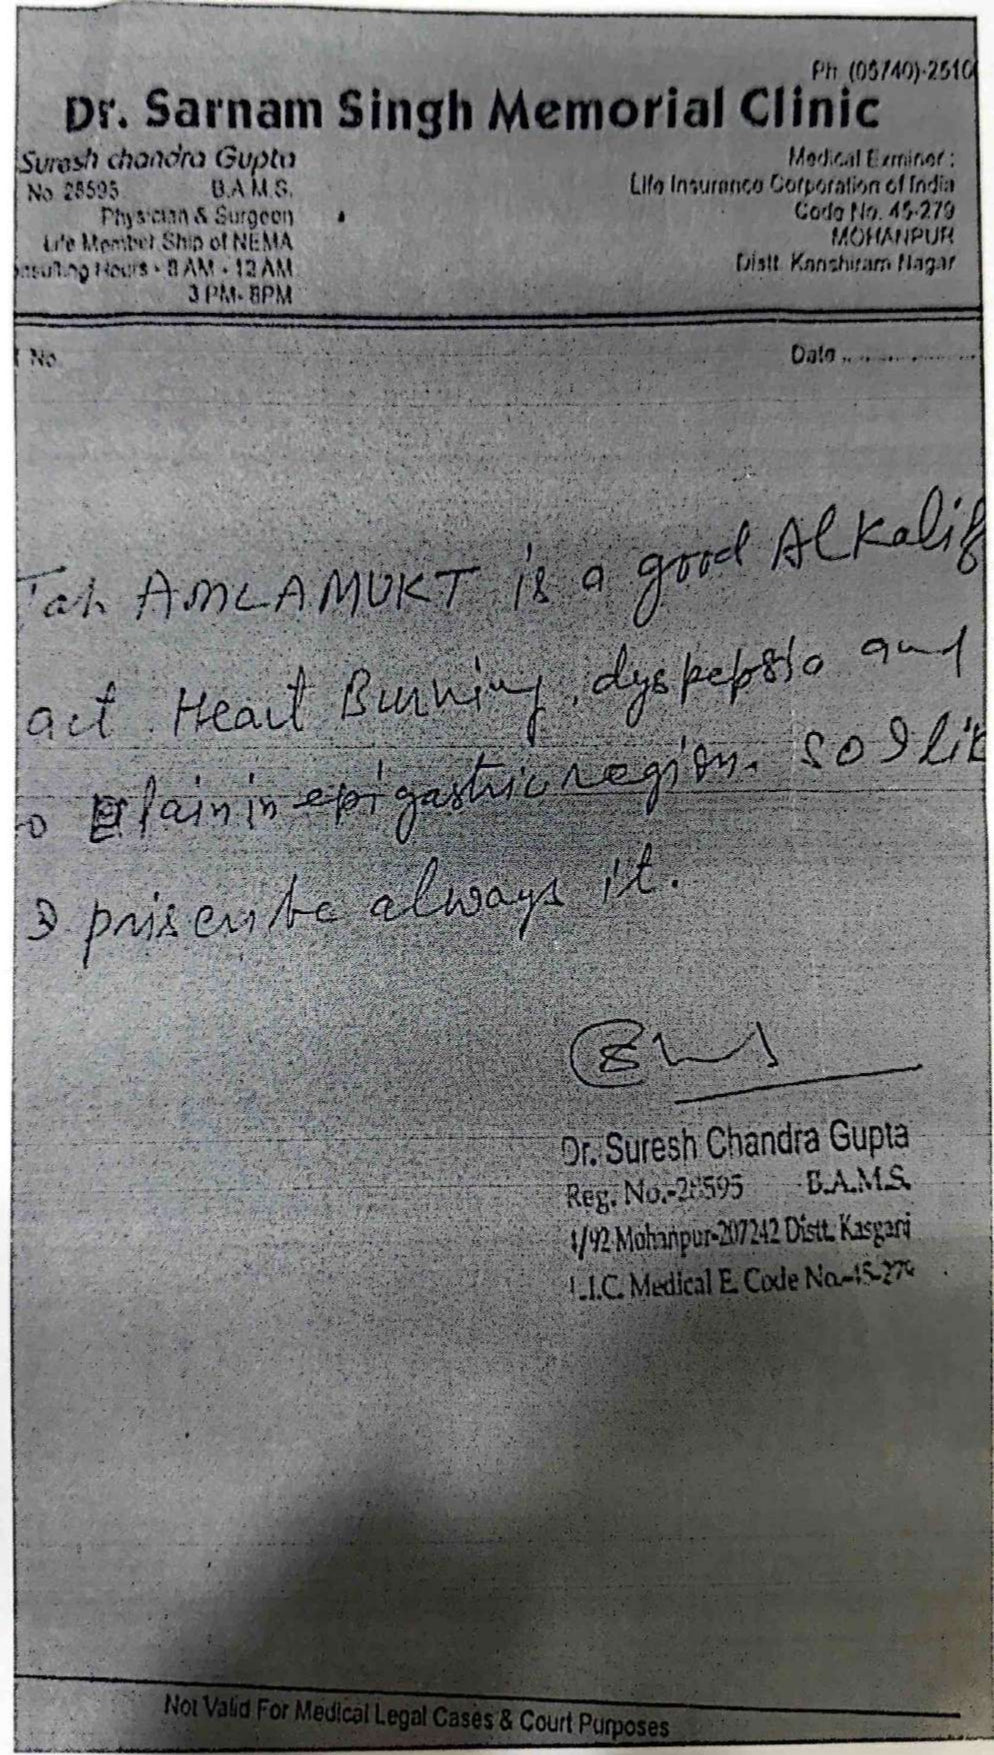 Ph (05740)-2510
Dr. Sarnam Singh Memorial Clinic
Suresh chandra Gupta
No 28595 B.A.M.S.
Physician & Surgeon
Life Member Ship of NEMA
nsulting Hours - 8 AM - 12 AM
3 PM- 8PM
Medical Exminer :
Life Insurance Corporation of India
Code No. 45-279
MOHANPUR
Distt. Kanshiram Nagar
No.
Date
Tab AMLAMUKT is a good Alkalif
act. Heart Burning, dyspepsia and
pain in epigastric region. So I lik
priscribe always it.
Dr. Suresh Chandra Gupta
Reg. No.-28595 B.A.M.S.
1/92 Mohanpur-207242 Distt. Kasganj
L.I.C. Medical E. Code No.-45-279
Not Valid For Medical Legal Cases & Court Purposes